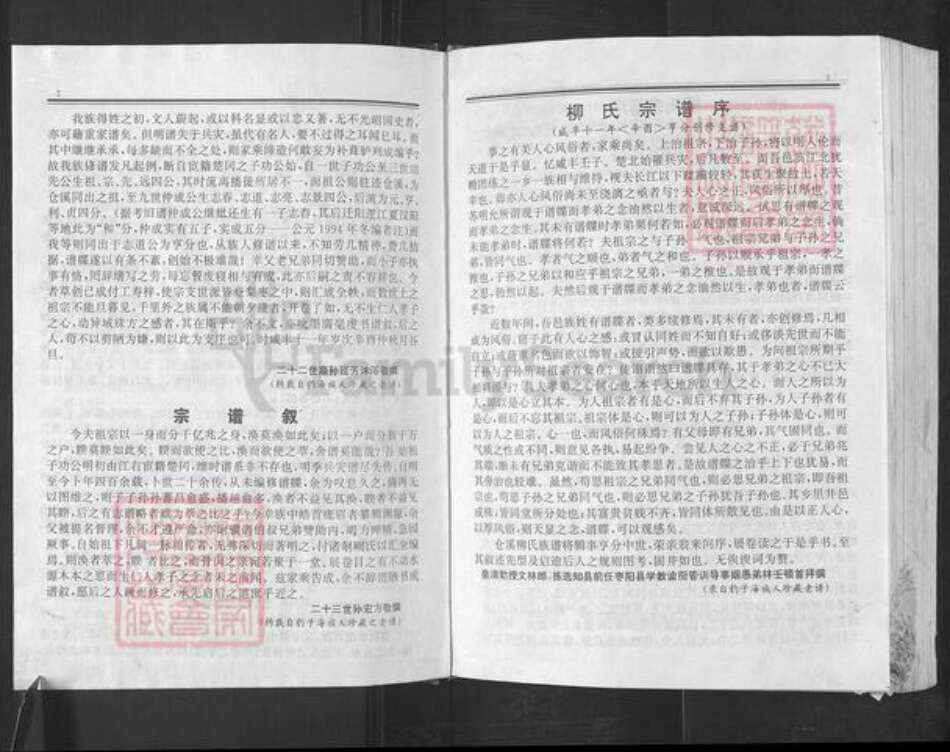 2
我族得姓之初,文人蔚起,或以科名显或以忠义著,无不光昭国史者,
亦可藉重家谱矣。但明谱失于兵灾,虽代有名人,要不过得之耳闻已耳,而
其中继继承承,每多缺而不全之处,则家乘缔造何敢妄为补葺胪列成编乎?
故我族修谱发凡起例,断自宦籍楚冈之子功公始,自一世子功公至三世
先公生祖、宗、先、远四公,其时流离播徙所居不一,而祖公则往迹仓溪,为
仓溪同出之祖,至九世仲成公生志春、志道、志亮、志景四公,后流为元、亨、
利、贞四分。(据考旧谱仲成公继娥还生有一子志春,其后迁阳逻江夏汉阳
等地此为“和”分,仲成实有五子,实成五分——公元1994年冬编者注)而
我等则同出于志道公为亨分也,从族人修谱以来,不知劳几精神,费几拮
据,谱牒遂以有条不紊,创始不极难哉!幸父老兄弟同切赞助,而小子亦执
事有恪,
者草创已成付工寿梓,使宗支世派皆
祖宗不能旦暮见,千里外之族属不能朝夕继者,开卷了如,无不生仁人孝子
之心,动异域殊方之感者,其在斯乎?余不文,
人,苟不以剪陋为嫌,则以此为支序也可。时咸丰十一年岁次辛酉仲秋月谷
旦。
二十二世裔孙廷万沐浴敬撰
(转载自豹子海族人珍藏之老谱)
宗谱叙
今夫祖宗以一身而分千亿兆之身,涣莫涣如此矣;以一户而分数千万
之户,睽莫睽如此矣。睽而欲使之比,涣而欲使之萃,舍谱奚能哉?吾始祖
子功公明初由江右宦籍楚冈,维时谱系非不存也,明季兵灾谱尽失传,自明
至今卜年四百余载,卜世二十余传,从未编修谱牒,余为叹息久之,
以图维之,则子子孙孙蕃昌愈盛,播越愈多,涣者不益见其涣,睽者不益见
其睽,后之有志谱略者或为萃之比之乎?今幸族中
父被提名督理,余不才遵严命,
厥事。自始祖下
房,则涣者萃之,睽者比之,
源木本之思而生仁人孝子之念者未之前闻。兹家乘告成,余不辞谱陋书成
谱叙,愿后之人踵而修之,承先启后之道世乎近之。
二十三世孙宏方敬撰
(转载自豹子海族人珍藏之老谱)
3
柳氏宗谱序
(咸丰十一年<辛酉>亨分创修支谱)
事之有关人心风俗者,家乘尚矣。上治祖宗,下治子孙,将以明人伦而
天道于是乎显。忆咸丰壬子。楚北始罹兵灾,后凡数至。而吾邑滨江北犹
赖团练之一乡一族相与维持,视夫长江以下蹂躏较轻,其获生聚故土,若天
幸也。得亦人心风俗尚未至浇漓之歌者与?夫人心之正,风俗所以厚也。昔
苏明允所谓观于谱牒而孝弟之念油然以生者,意诚深远。试思有谱牒之观
而孝弟之念生,其未有谱牒时孝弟果何若如,必观谱牒而后孝弟之念生,倘
未能孝弟时,谱牒将何若?夫祖宗之与子孙一气也,祖宗兄弟与子孙之兄
弟,皆同气也。孝者气之顺也,弟者气之和也。子孙以顺承乎祖宗,一孝之
推也,子孙之兄弟以和应乎祖宗之兄弟,一弟之推也,是故观于孝弟而谱牒
之思,勃然以起。夫然后观于谱牒而孝弟之念油然以生,孝弟也者,谱牒云
乎哉!
近数年间,吾邑族姓有谱牒者,类多续修焉,其未有者,亦创修焉,几相
成为风俗。窃于此有人心之感,或冒认同姓而不知自好;或侈谈先世而不能
自立;或藉重名色而欲以饰智;或援引声势,而欲以欺愚。为问祖宗所期乎
子孙与子孙所对祖宗者安在?
夫孝弟之心何心也,本乎天地所以生人之心。而人之所以为
人,即以是心立其本。为人祖宗者有是心,而后不弃其子孙,为人子孙者有
是心,而后不忘其祖宗。祖宗体是心,则可以为人之子孙;子孙体是心,则可
以为人之祖宗。心一也,而风俗何殊焉?有父母即有兄弟,其气固同也。而
气质之性或不同,则意见各执,易起纷争。尝见人之心之不正,必于兄弟兆
其端,断未有兄弟克谐而不能致其孝思者。是故谱牒之治乎上下也犹易,而
其傍治也较难。虽然,苟思祖宗之兄弟同气也,则必思兄弟之祖宗,即吾祖
宗也,苟思子孙之兄弟同气也,则必思兄弟之子孙犹吾子孙也。其乡里井邑
成株,皆同堂所分处也;其富贵贫贱不齐,皆同体所散见也,由是以正人心,
以厚风俗,则天显之念,谱牒,可以观感矣。
仓溪柳氏族谱将辑事亨分中世,荣亲翁来问序,展卷读之于是乎书。至
其叙述先型及启迪后人之规则图考,固井如也。无俟谀词为赘。
皇清敕授文林郎,拣选知县前任枣阳县学教谕衔管训导事姻愚弟林壬顿首拜撰
(录自豹子海族人珍藏老谱)